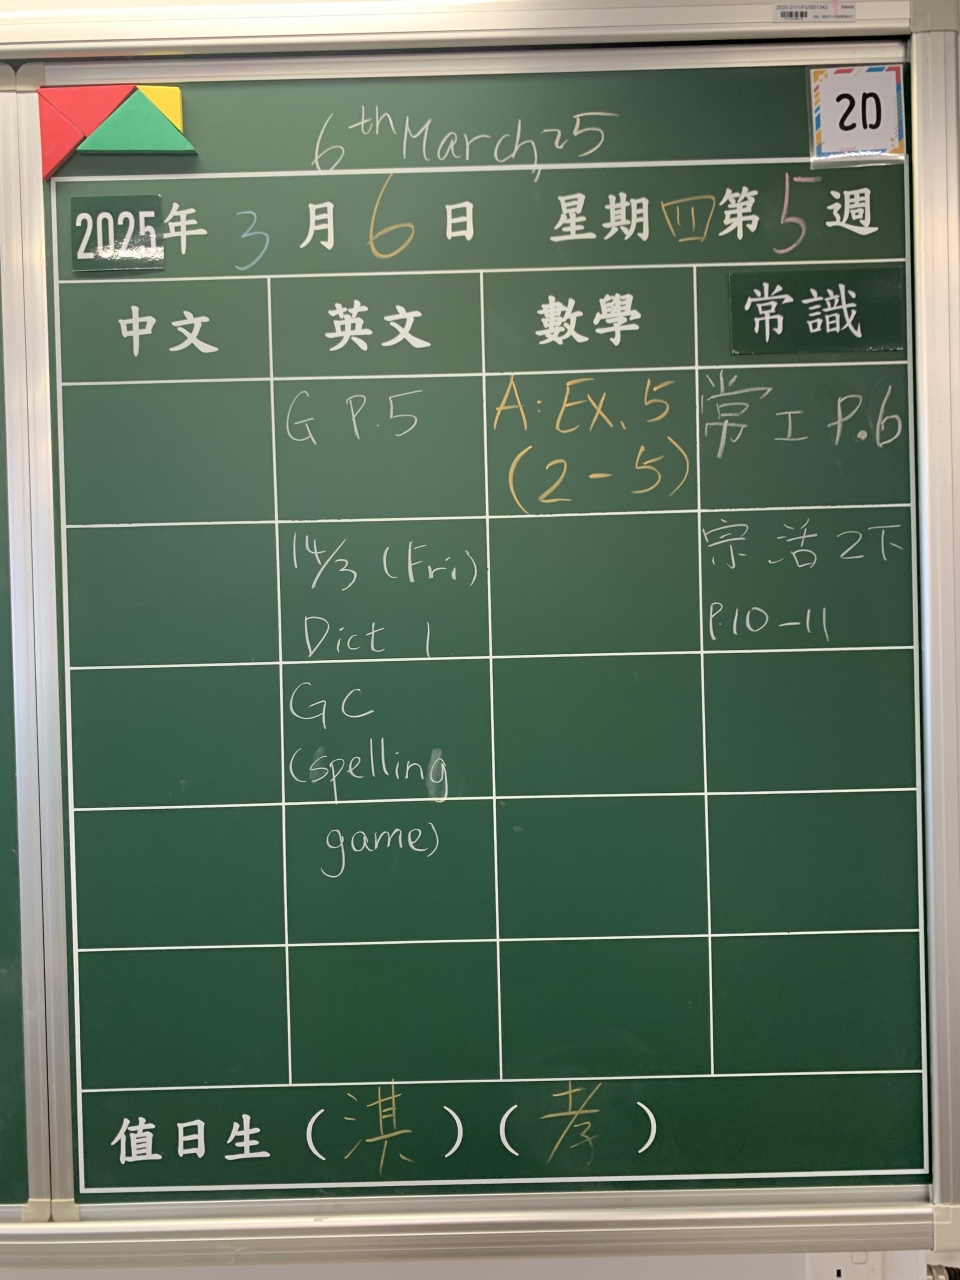 2D
6th March, 25
2025年 3 月 6 日 星期四 第 5 週
中文 英文 數學 常識
G P.5
A: Ex. 5
(2-5)
常工 P.6
14/3 (Fri)
Dict 1
宗 活 2下
P.10-11
GC
(spelling
game)
值日生 (淇) (孝)